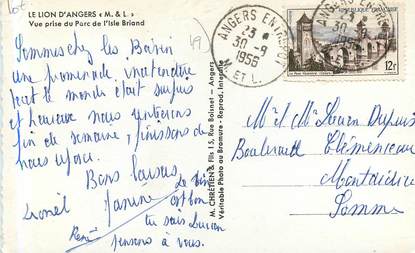 LE LION D'ANGERS « M. & L. »
Vue prise du Parc de l'Isle Briand
49
Sommes chez les
une promenade, inattendue
tout le monde était surpris
et heureux nous
fin de semaine, finissons de
nous
Bons baisers
Lionel Janine
René
Le vin
est bon
tu sais Lucien
pensons à vous.
M. CHRÉTIEN & Fils 15, Rue Boisnet - Angers
Véritable Photo au Bromure - Reprod. Interdite
ANGERS ENTREPOT
23
30-9
1956
M. ET L.
RÉPUBLIQUE FRANÇAISE
12F
M et Me Lucien Dupuis
Boulevard Clémenceau
Montdidier
Somme